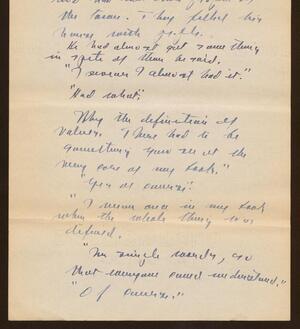 the town. They filled his
house with
He had almost got something
in spite of them he said.
"I swear I almost had it."
"Had what."
Why the definition of
values. I have had to be
something you see at the
very core of my book."
"Yes of course."
"I mean once in my book
when the whole thing was
defined.
"In single words, so
that everyone could understand."
"Of course."